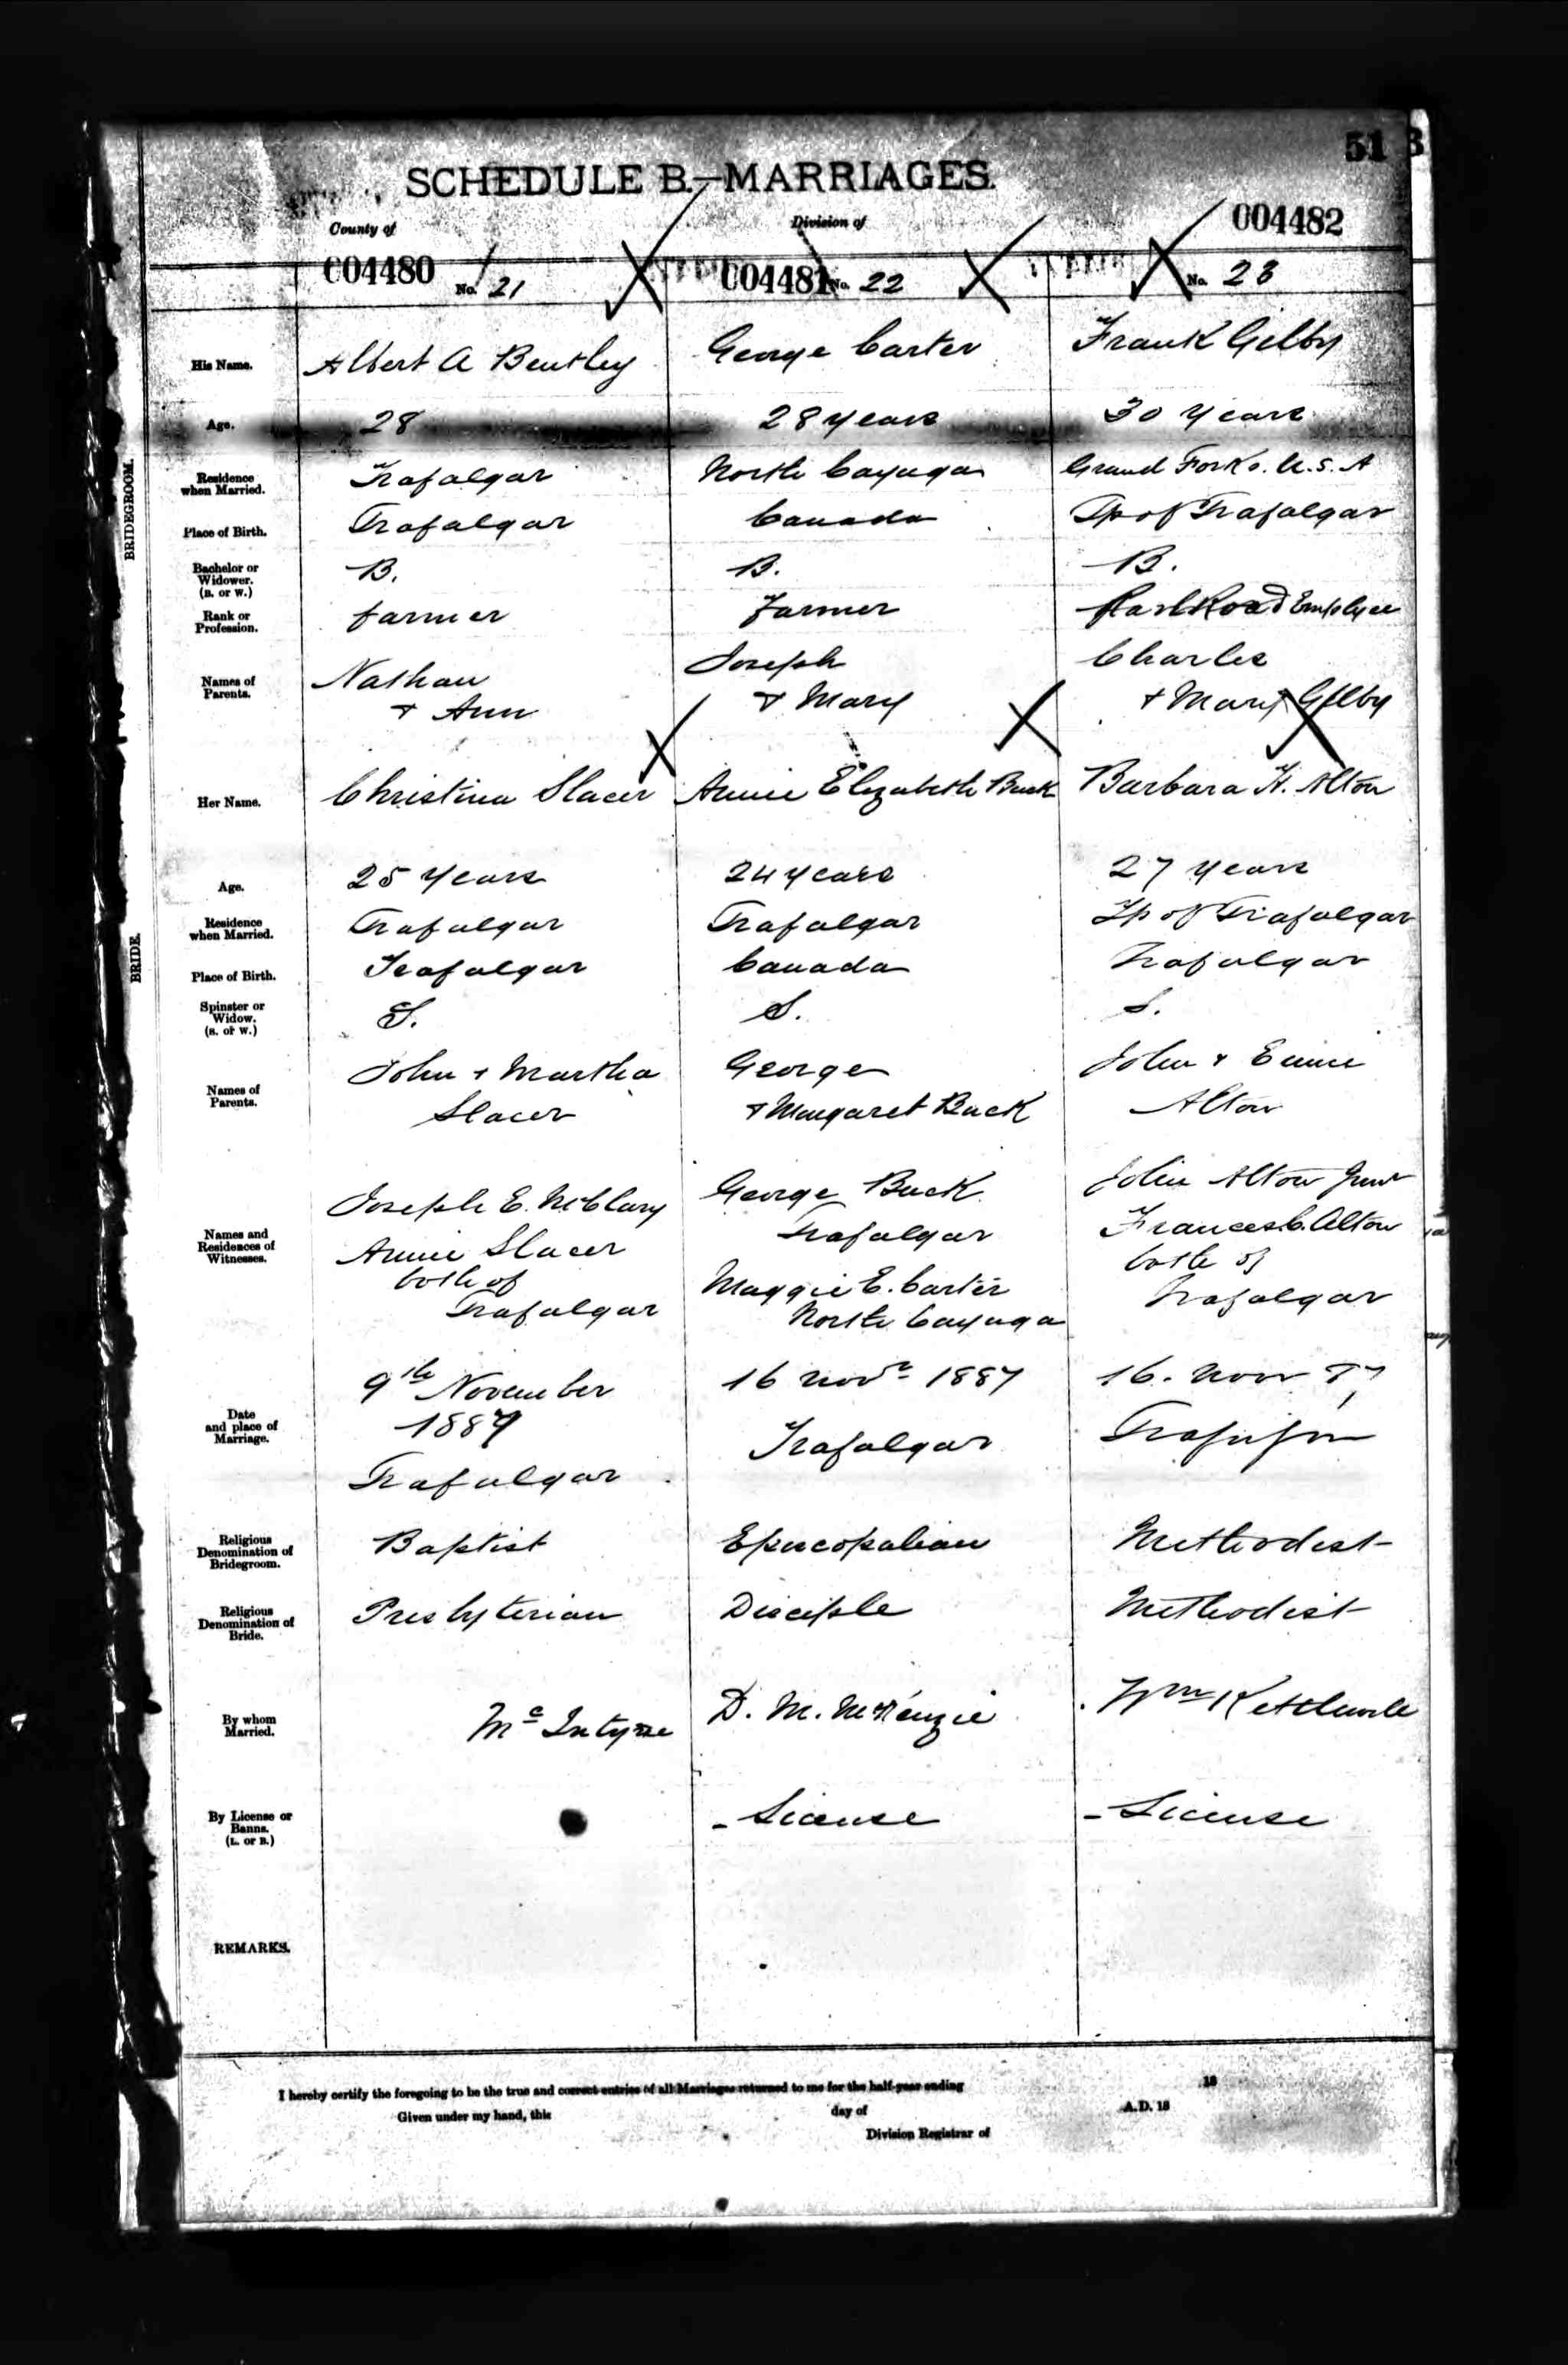 51
SCHEDULE B.—MARRIAGES.
County of
Division of
004482
004480 No. 21
004481 No. 22
No. 23
BRIDEGROOM.
His Name.
Albert A Bentley
George Carter
Frank Gilby
Age.
28
28 years
30 years
Residence when Married.
Trafalgar
North Cayuga
Grand Forks. U.S.A
Place of Birth.
Trafalgar
Canada
Tp of Trafalgar
Bachelor or Widower. (B. or W.)
B.
B.
B.
Rank or Profession.
farmer
Farmer
RailRoad Employee
Names of Parents.
Nathan
& Ann
Joseph
& Mary
Charles
& Mary Gilby
BRIDE.
Her Name.
Christina Slacer
Annie Elizabeth Buck
Barbara H. Alton
Age.
25 years
24 years
27 years
Residence when Married.
Trafalgar
Trafalgar
Tp of Trafalgar
Place of Birth.
Trafalgar
Canada
Trafalgar
Spinster or Widow. (S. or W.)
S.
S.
S.
Names of Parents.
John & Martha
Slacer
George
& Margaret Buck
John &
Alton
Names and Residences of Witnesses.
Joseph E. McClary
Annie Slacer
both of
Trafalgar
George Buck
Trafalgar
Maggie E. Carter
North Cayuga
John Alton Junr
Frances C. Alton
both of
Trafalgar
Date and place of Marriage.
9th November
1887
Trafalgar
16 Novr 1887
Trafalgar
16. Novr 87
Religious Denomination of Bridegroom.
Baptist
Episcopalian
Methodist
Religious Denomination of Bride.
Presbyterian
Disciple
Methodist
By whom Married.
Mc Intyre
D. M. McKenzie
Wm
By License or Banns. (L. or B.)
License
License
REMARKS.
I hereby certify the foregoing to be the true and correct entries of all Marriages returned to me for the half-year ending 18
Given under my hand, this day of A.D. 18
Division Registrar of